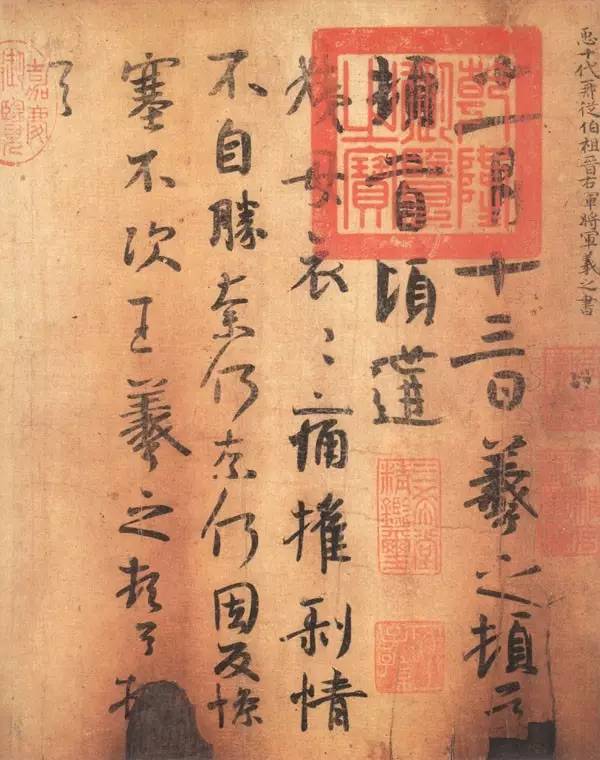 十代再從伯祖晉右軍將軍羲之書
十一月十三日羲之頓首
頓首頃遘
姨母哀〻痛摧剝情
不自勝奈何奈何因反慘
塞不次王羲之頓首頓
首
乾隆御覽之寶
三希堂精鑑璽
嘉慶御覽